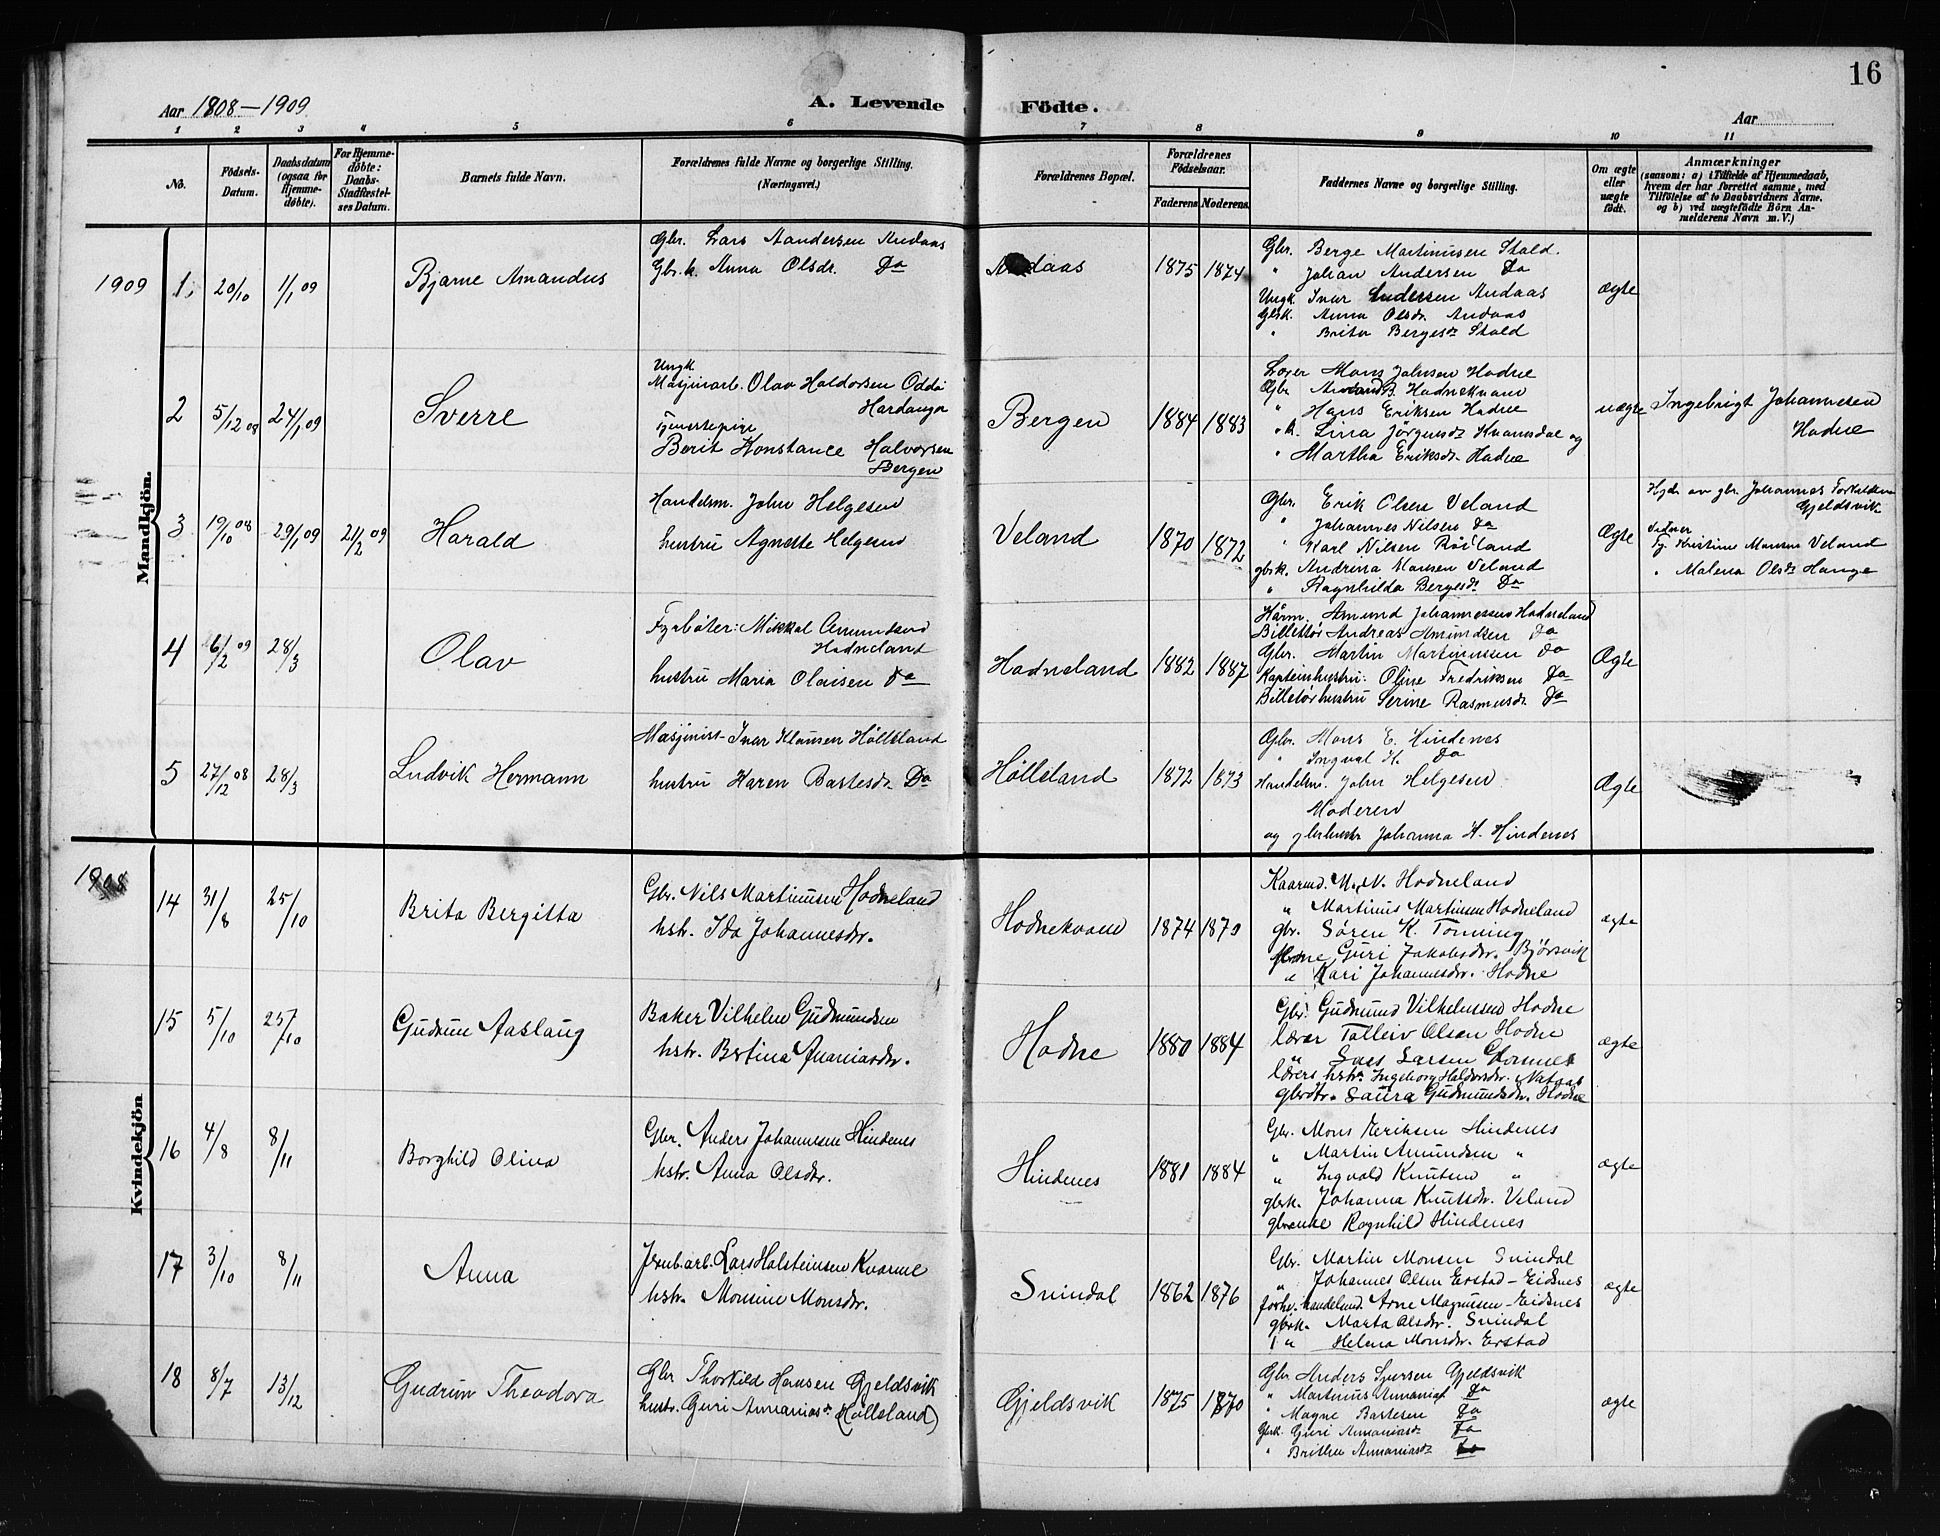 16
Aar 1808–1909
A. Levende Födte.
Aar
1 2 3 4 5 6 7 8 9 10 11
No.
Födsels-Datum.
Daabsdatum (ogsaa for Hjemme-døbte).
For Hjemme-døbte: Daabs-Stadfæstel-ses Datum.
Barnets fulde Navn.
Forældrenes fulde Navne og borgerlige Stilling.
(Næringsvei.)
Forældrenes Bopæl.
Forældrenes Födselsaar.
Faderens. Moderens.
Faddernes Navne og borgerlige Stilling.
Om ægte eller uægte født.
Anmærkninger
(saasom: a) i Tilfælde af Hjemmedaab,
hvem der har forrettet samme, med
Tilföielse af to Daabsvidners Navne,
og b) ved uægtefødte Börn An-
melderens Navn m. V.)
Mandkjön.
1909 1. 20/10 1/1 09
Bjarne Amandus
Gbr. Lars Aandersen Andaas
Gbr.k. Anna Olsdr. Do
Andaas
1875 1874
Gbr. Berge Martinusen Stald.
" Johan Andersen Do
Ungk. Ivar Andersen Andaas
Gbrk. Anna Olsdr. Andaas
" Brita Bergesdr Stald
Ægte
2 5/12 08 24/1 09
Sverre
Ungk
Masjinarb. Olav Haldorsen Odda
Hardanger
Tjenestepige
Berit Konstance Halvorsen
Bergen
Bergen
1884 1883
Lærer Mons Johnsen Hodne
Gbr B. Hodnekvam
" Hans Eriksen Hodne
" k. Lina Jörgensdr Kvamsdal og
" Martha Eriksdr. Hodne
uægte
Ingebrigt Johannesen
Hodne
3 19/10 08 29/1 09 21/2 09
Harald
Handelsm. John Helgesen
hustru Agnette Helgesen
Veland
1870 1872
Gbr. Erik Olsen Veland
" Johannes Nilsen Do
" Karl Nilsen
gbrk. Andrina Monsen Veland
" Ragnhilda Bergesdr Do
Ægte
Hjdr. av gbr. Johannes
Gjeldsvik
Vidner
Kristine Monsen Veland
" Malena Olsdr Hauge
4 6/2 09 28/3
Olav
Fyrböter: Mikkal Amundsen
Hodneland
hustru Maria Olaisen Do
Hodneland
1882 1887
Kårm. Amund Johannessen Hodneland
Billettör Andreas Amundsen Do
Gbr. Martin Martinussen Do
Kapteinhustru: Oline Fredriksen Do
Billetörhustru Serine Rasmusdr. Do
Ægte
5 27/12 08 28/3
Ludvik Hermann
Masjinist Ivar Klausen Höllesland
hustru Karen Bastesdr Do
Höllsland
1872 1873
Gbr. Mons E. Hindenes
" Ingval H. Do
Handelsm. John Helgesen
Moderen
og gbrhustr Johanna H. Hindenes
Ægte
Kvindekjön
1908
14 31/8 25/10
Brita Bergitta
Gbr. Nils Martinusen Hodneland
hstr. Ida Johannesdr.
Hodnekvam
1874 1870
Kaarmd. M. N. Hodneland
" Martinus Martinsen Hodneland
gbr. Sören K. Tonning
Guri Jakobsdr. Bjørsvik
" Kari Johannesdr. Hodne
ægte
15 5/10 25/10
Gudrun Aaslaug
Baker Vilhelm Gudmundsen
hstr. Bertina Ananiasdr.
Hodne
1880 1884
Gbr. Gudmund Vilhelmsen Hodne
lærer Talleiv Olsen Hodne
" Lars Larsen
lærers hstr. Ingeborg Haldorsdr. Nataas
gbrdtr. Laura Gudmundsdr. Hodne
ægte
16 4/8 8/11
Borghild Olina
Gbr. Anders Johannesen Hindenes
hstr. Anna Olsdr.
Hindenes
1881 1884
Gbr. Mons Eriksen Hindenes
" Martin Amundsen "
" Ingvald Knutsen "
gbrk. Johanna Knutsdr. Veland
gbrenke Ragnhild Hindenes
ægte
17 3/10 8/11
Anna
Jernb.arb. Lars Holsteinsen Kvamme
hstr. Monsine Monsdr.
Svindal
1862 1876
Gbr. Martin Monsen Svindal
" Johannes Olsen Erstad – Eidsnes
forhv. handelsmd. Arne Magnussen – Eidsnes
gbrk. Marta Olsdr. Svindal
" Helena Monsdr. Erstad
ægte
18 8/7 13/12
Gudrun Theodora
Gbr Thorkild Hansen Gjeldsvik
hustr. Guri Annaniasdr. (Höllsland)
Gjeldsvik
1875 1870
Gbr Anders Iversen Gjeldsvik
" Martinus Annanias Do
" Magne Bastesen Do
Gbrk. Guri Annaniasdr Do
" Brithe Annaniasdr Do
ægte